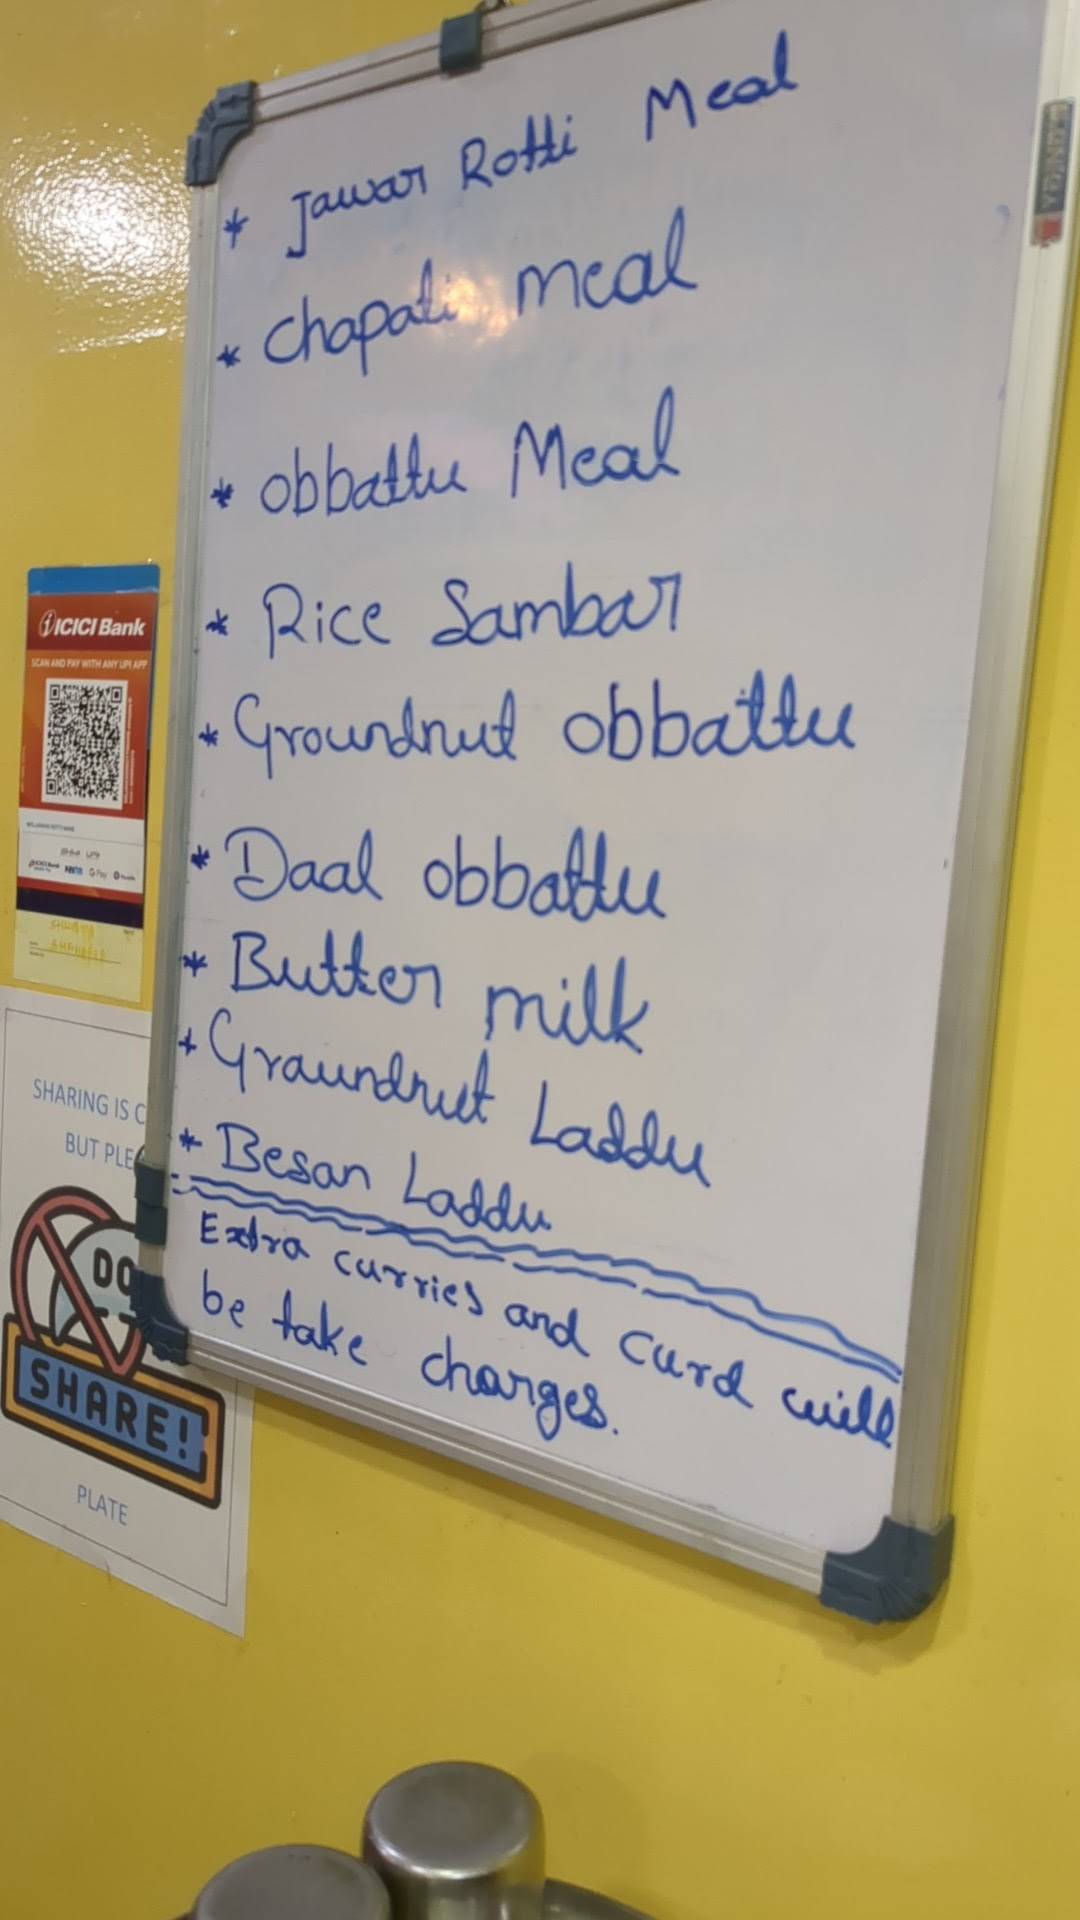 * Jawar Rotti Meal
* Chapati meal
* obbattu Meal
* Rice Sambar
* Groundnut obbattu
* Daal obbattu
* Butter milk
* Graundnut Laddu
* Besan Laddu
Extra curries and Curd will
be take charges.
ICICI Bank
SCAN AND PAY WITH ANY UPI APP
G Pay
SHARING IS C
BUT PLE
DO
SHARE!
PLATE